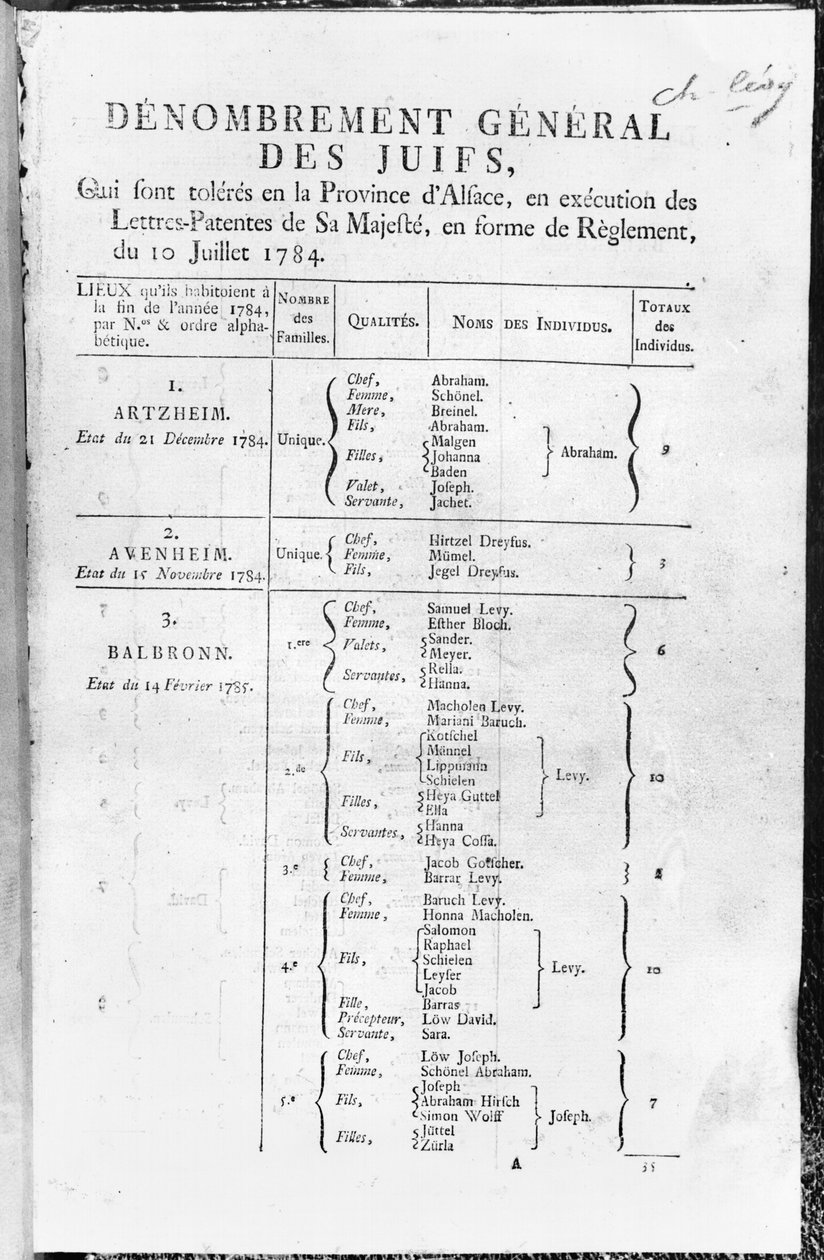 ch. lévy
DÉNOMBREMENT GÉNÉRAL
DES JUIFS,
Qui ſont tolérés en la Province d'Alſace, en exécution des
Lettres-Patentes de Sa Majeſté, en forme de Règlement,
du 10 Juillet 1784.
LIEUX qu'ils habitoient à
la fin de l'année 1784,
par N.os & ordre alpha-
bétique.
NOMBRE
des
Familles.
QUALITÉS.
NOMS DES INDIVIDUS.
TOTAUX
des
Individus.
1.
ARTZHEIM.
Etat du 21 Décembre 1784.
Unique.
Chef, Abraham.
Femme, Schönel.
Mere, Breinel.
Fils, Abraham.
Malgen
Filles, Johanna Abraham. 9
Baden
Valet, Joſeph.
Servante, Jachet.
2.
AVENHEIM.
Etat du 15 Novembre 1784.
Unique.
Chef, Hirtzel Dreyfus.
Femme, Mümel. 3
Fils, Jegel Dreyfus.
3.
BALBRONN.
Etat du 14 Février 1785.
1.ere
Chef, Samuel Levy.
Femme, Eſther Bloch.
Valets, Sander. 6
Meyer.
Servantes, Rella.
Hanna.
2.de
Chef, Macholen Levy.
Femme, Mariani Baruch.
Kotſchel
Fils, Männel
Lippmann
Schielen Levy. 10
Filles, Heya Guttel
Ella
Servantes, Hanna
Heya Coſſa.
3.e
Chef, Jacob Gotſcher.
Femme, Barrar Levy. 2
4.e
Chef, Baruch Levy.
Femme, Honna Macholen.
Salomon
Raphael
Fils, Schielen Levy. 10
Leyſer
Jacob
Fille, Barras
Précepteur, Löw David.
Servante, Sara.
5.e
Chef, Löw Joſeph.
Femme, Schönel Abraham.
Joſeph
Fils, Abraham Hirſch 7
Simon Wolff Joſeph.
Filles, Jüttel
Zürla
A
35